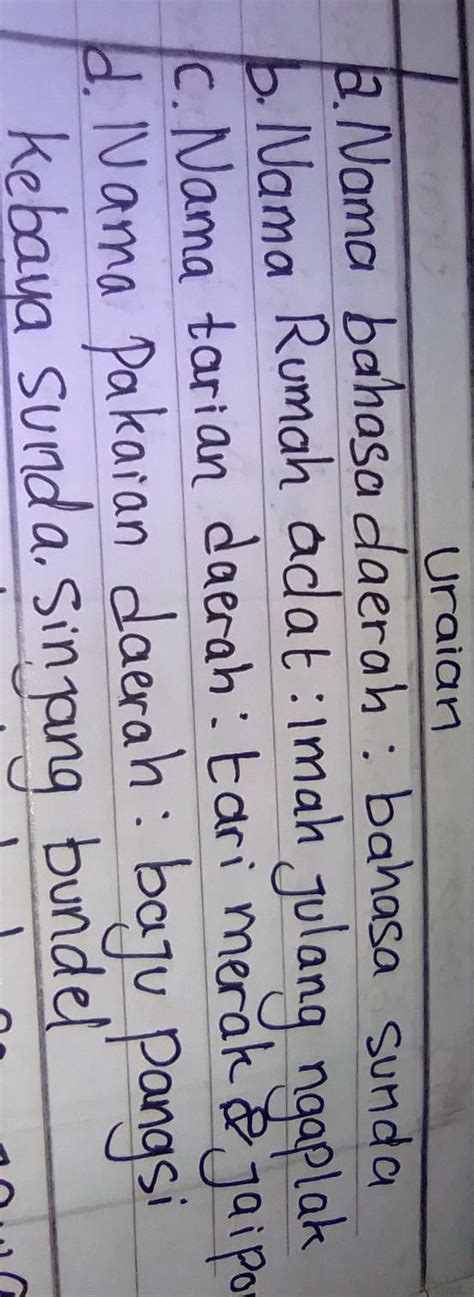 Uraian
a. Nama bahasa daerah : bahasa sunda
b. Nama Rumah adat : imah julang ngaplak
c. Nama tarian daerah : tari merak & jaipo
d. Nama pakaian daerah : baju pangsi
kebaya sunda. Sinjang bundel